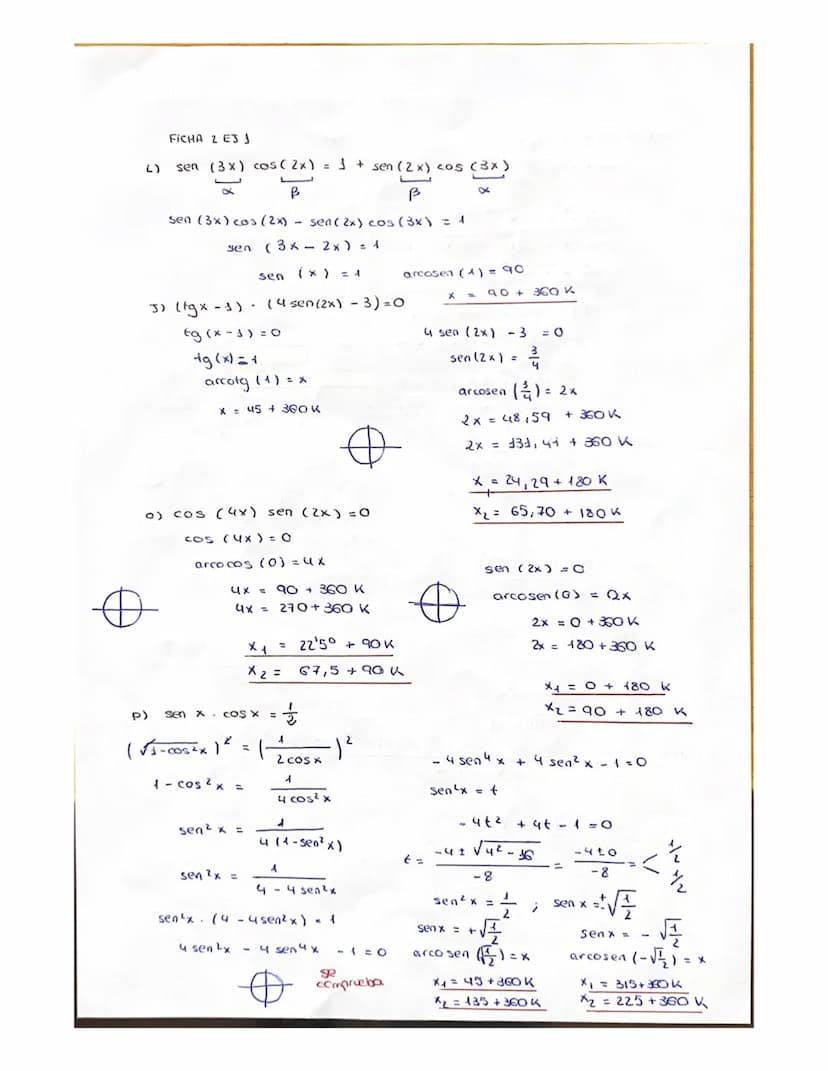 FICHA 2 EJ 1
L) sen (3x) cos (2x) = 1 + sen (2x) cos (3x)
α β β α
sen (3x) cos (2x) - sen (2x) cos (3x) = 1
sen (3x - 2x) = 1
sen (x) = 1 arcosen (1) = 90
x = 90 + 360 K
J) (tgx - 1) · (4 sen(2x) - 3) = 0
tg (x - 1) = 0
tg (x) = 1
arcotg (1) = x
x = 45 + 360 K
4 sen (2x) - 3 = 0
sen (2x) = 3/4
arcosen (3/4) = 2x
2x = 48,59 + 360 K
2x = 131,41 + 360 K
x₁ = 24,29 + 180 K
x₂ = 65,70 + 180 K
o) cos (4x) sen (2x) = 0
cos (4x) = 0
arcocos (0) = 4x
4x = 90 + 360 K
4x = 270 + 360 K
x₁ = 22'5° + 90 K
x₂ = 67,5 + 90 K
sen (2x) = 0
arcosen (0) = 2x
2x = 0 + 360 K
2x = 180 + 360 K
x₁ = 0 + 180 K
x₂ = 90 + 180 K
p) sen x · cos x = 1/2
(√1-cos²x)² = (1/2cosx)²
1 - cos²x = 1/4cos²x
sen²x = 1/4(1-sen²x)
sen²x = 1/4-4sen²x
sen²x · (4 - 4sen²x) = 1
4 sen²x - 4 sen⁴x - 1 = 0
se
comprueba
- 4 sen⁴x + 4 sen²x - 1 = 0
sen²x = t
- 4t² + 4t - 1 = 0
t = -4 ± √4² - 16 / -8 = -4 ± 0 / -8 = < 1/2 1/2
sen²x = 1/2 ; sen x = ±√1/2
sen x = +√1/2
arcosen (√1/2) = x
x₁ = 45 + 360 K
x₂ = 135 + 360 K
sen x = -√1/2
arcosen (-√1/2) = x
x₁ = 315 + 360 K
x₂ = 225 + 360 K